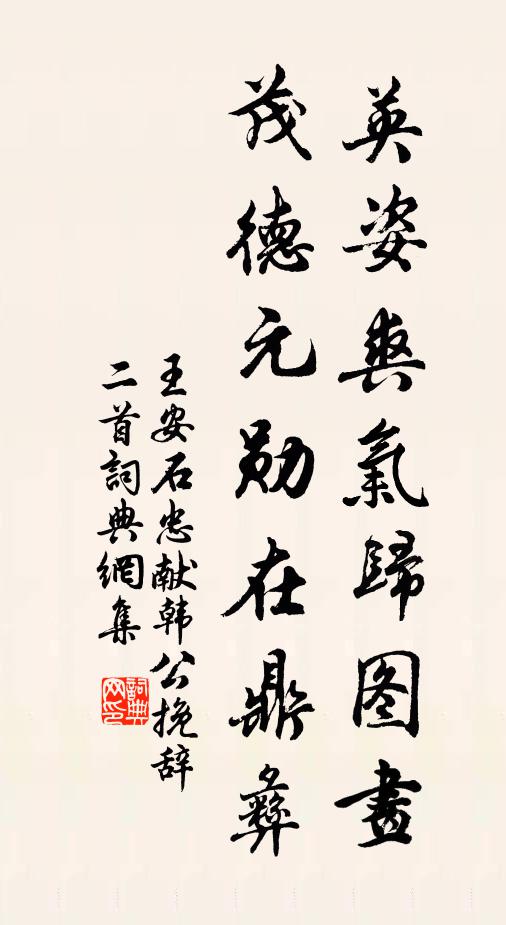 英姿爽氣歸图畫
茂德元勋在鼎彞
王安石忠献韩公挽辞
二首詞典網集
詞典
网印